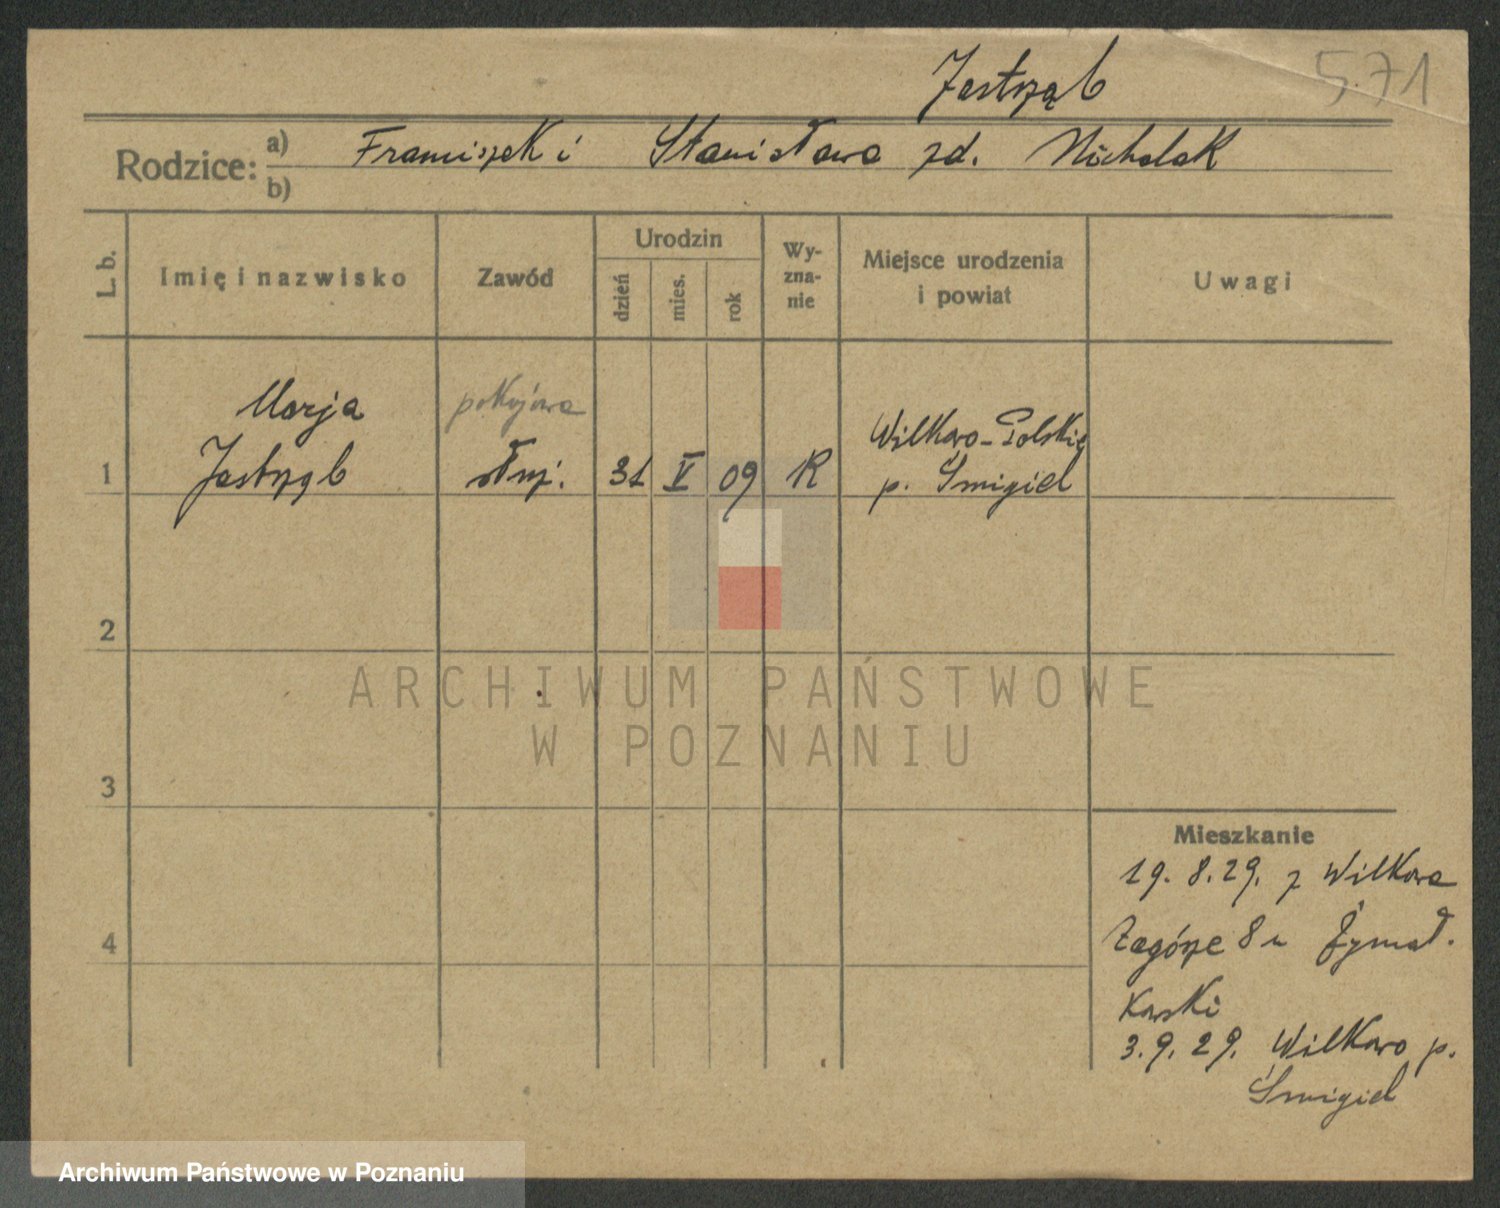 Jastrząb 571
Rodzice: a) Franciszek i Stanisława zd. Michalak
b)
L. b. Imię i nazwisko Zawód Urodzin dzień mies. rok Wyznanie Miejsce urodzenia i powiat Uwagi
Marja pokojowa
Jastrząb służ. 31 V 09 R Wilkowo-Polskie
1 p. Śmigiel
2
ARCHIWUM PAŃSTWOWE
W POZNANIU
3
Mieszkanie
19. 8. 29. z Wilkowa
4 Zagórze 8 u Żymał.
kowski
3. 9. 29. Wilkowo p.
Śmigiel
Archiwum Państwowe w Poznaniu